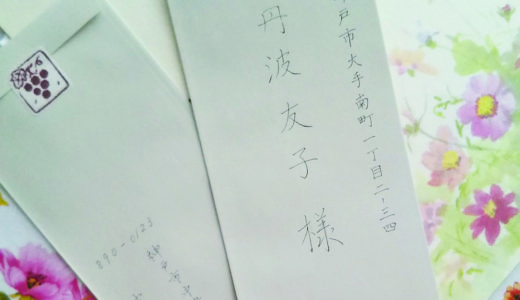 戸市大手南町一丁目二ー三四
丹波友子様
890-0123
神戸市中